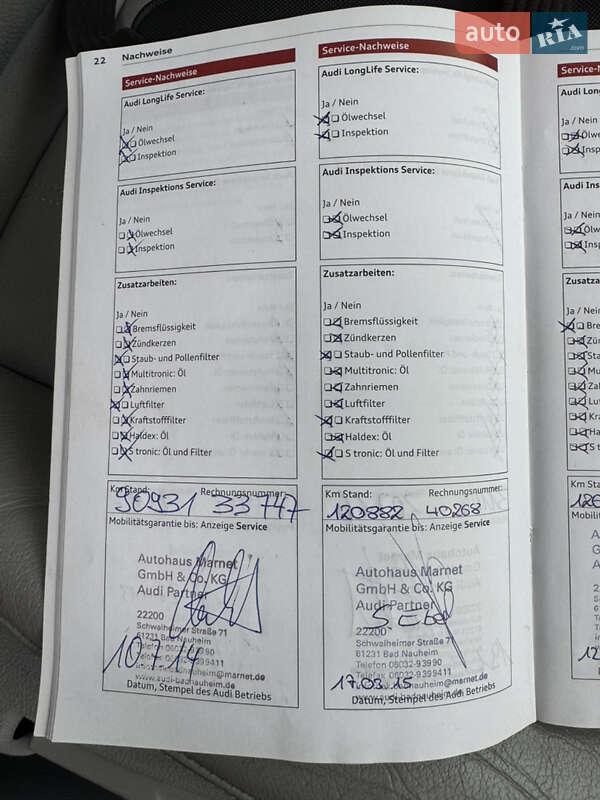 auto RIA.com
22 Nachweise
Service-Nachweise
Audi LongLife Service:
Ja / Nein
Ölwechsel
Inspektion
Audi Inspektions Service:
Ja / Nein
Ölwechsel
Inspektion
Zusatzarbeiten:
Ja / Nein
Bremsflüssigkeit
Zündkerzen
Staub- und Pollenfilter
Multitronic: Öl
Zahnriemen
Luftfilter
Kraftstofffilter
Haldex: Öl
S tronic: Öl und Filter
Km Stand: Rechnungsnummer:
90931 33747
Mobilitätsgarantie bis: Anzeige Service
Autohaus Marnet
GmbH & Co. KG
Audi Partner
22200
Schwalheimer Straße 71
61231 Bad Nauheim
Telefon 06032-93990
@marnet.de
www.audi-badnauheim.de
10.7.14
Datum, Stempel des Audi Betriebs
Service-Nachweise
Audi LongLife Service:
Ja / Nein
Ölwechsel
Inspektion
Audi Inspektions Service:
Ja / Nein
Ölwechsel
Inspektion
Zusatzarbeiten:
Ja / Nein
Bremsflüssigkeit
Zündkerzen
Staub- und Pollenfilter
Multitronic: Öl
Zahnriemen
Luftfilter
Kraftstofffilter
Haldex: Öl
S tronic: Öl und Filter
Km Stand: Rechnungsnummer:
120882 40268
Mobilitätsgarantie bis: Anzeige Service
Autohaus Marnet
GmbH & Co. KG
Audi Partner
22200
Schwalheimer Straße 71
61231 Bad Nauheim
Telefon 06032-93990
Telefax 06032-9399411
@marnet.de
www.audi-badnauheim.de
17.03.15
Datum, Stempel des Audi Betriebs
Service-N
Audi Lon
Ja / Nein
Ölw
Insp
Audi Ins
Ja / Nein
Ölw
Ins
Zusatza
Ja / Nein
Br
Zün
Sta
Mu
Za
Lu
Kra
Ha
S t
Km Stan
126
Mobilitä